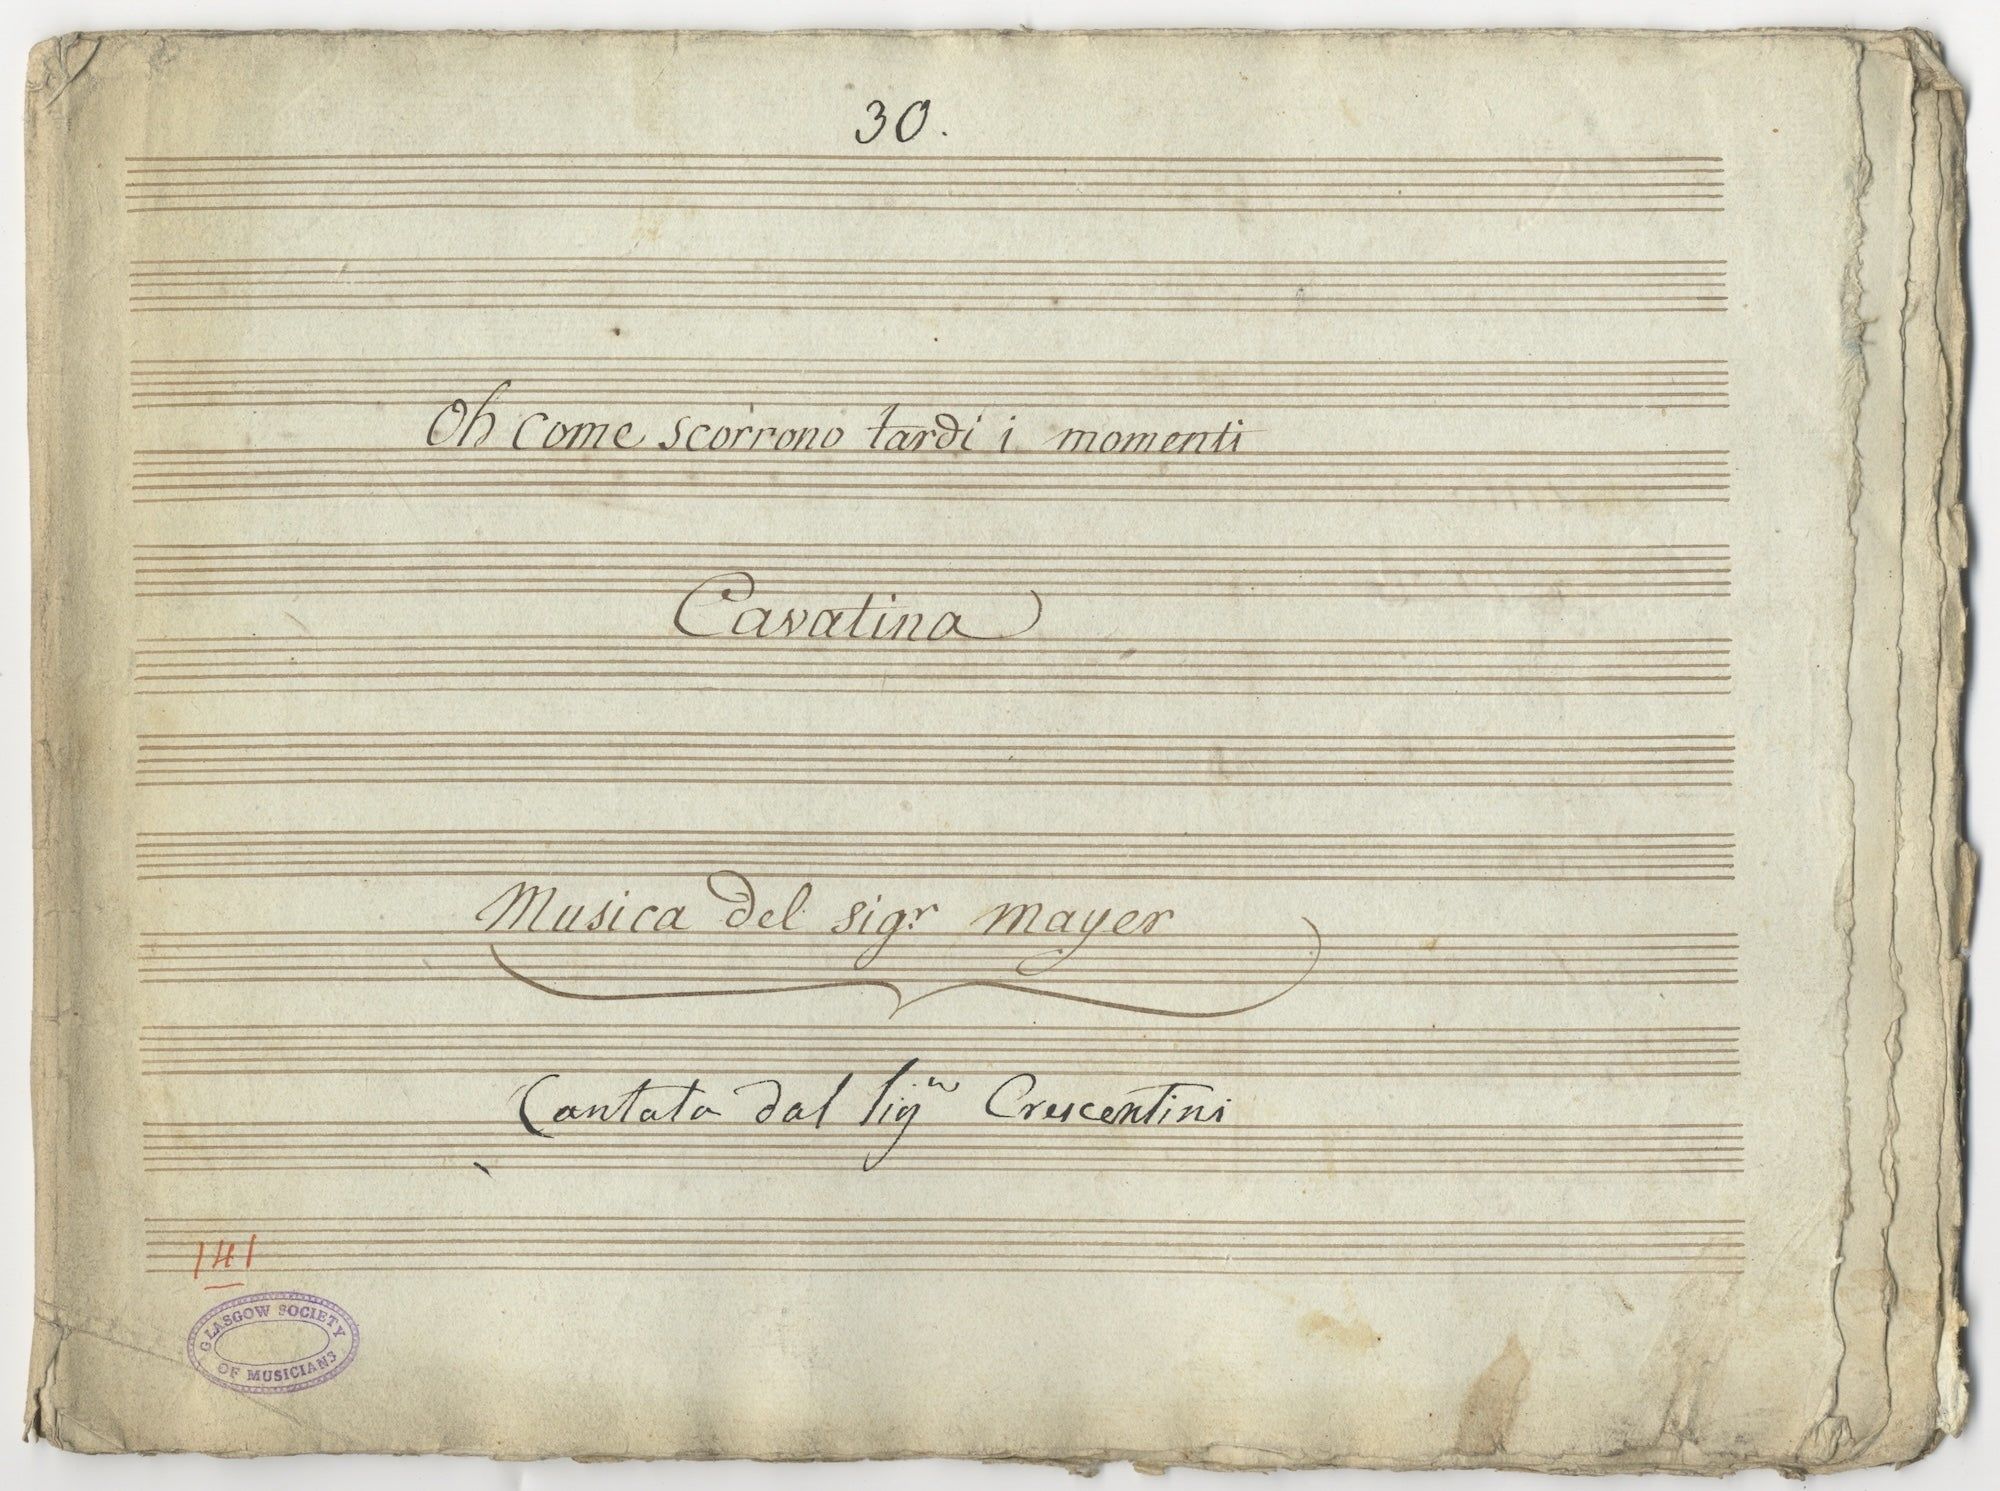 30.
Oh come scorrono tardi i momenti
Cavatina
Musica del sigr. mayer
Cantata dal Sigr Crescentini
141
GLASGOW SOCIETY
OF MUSICIANS